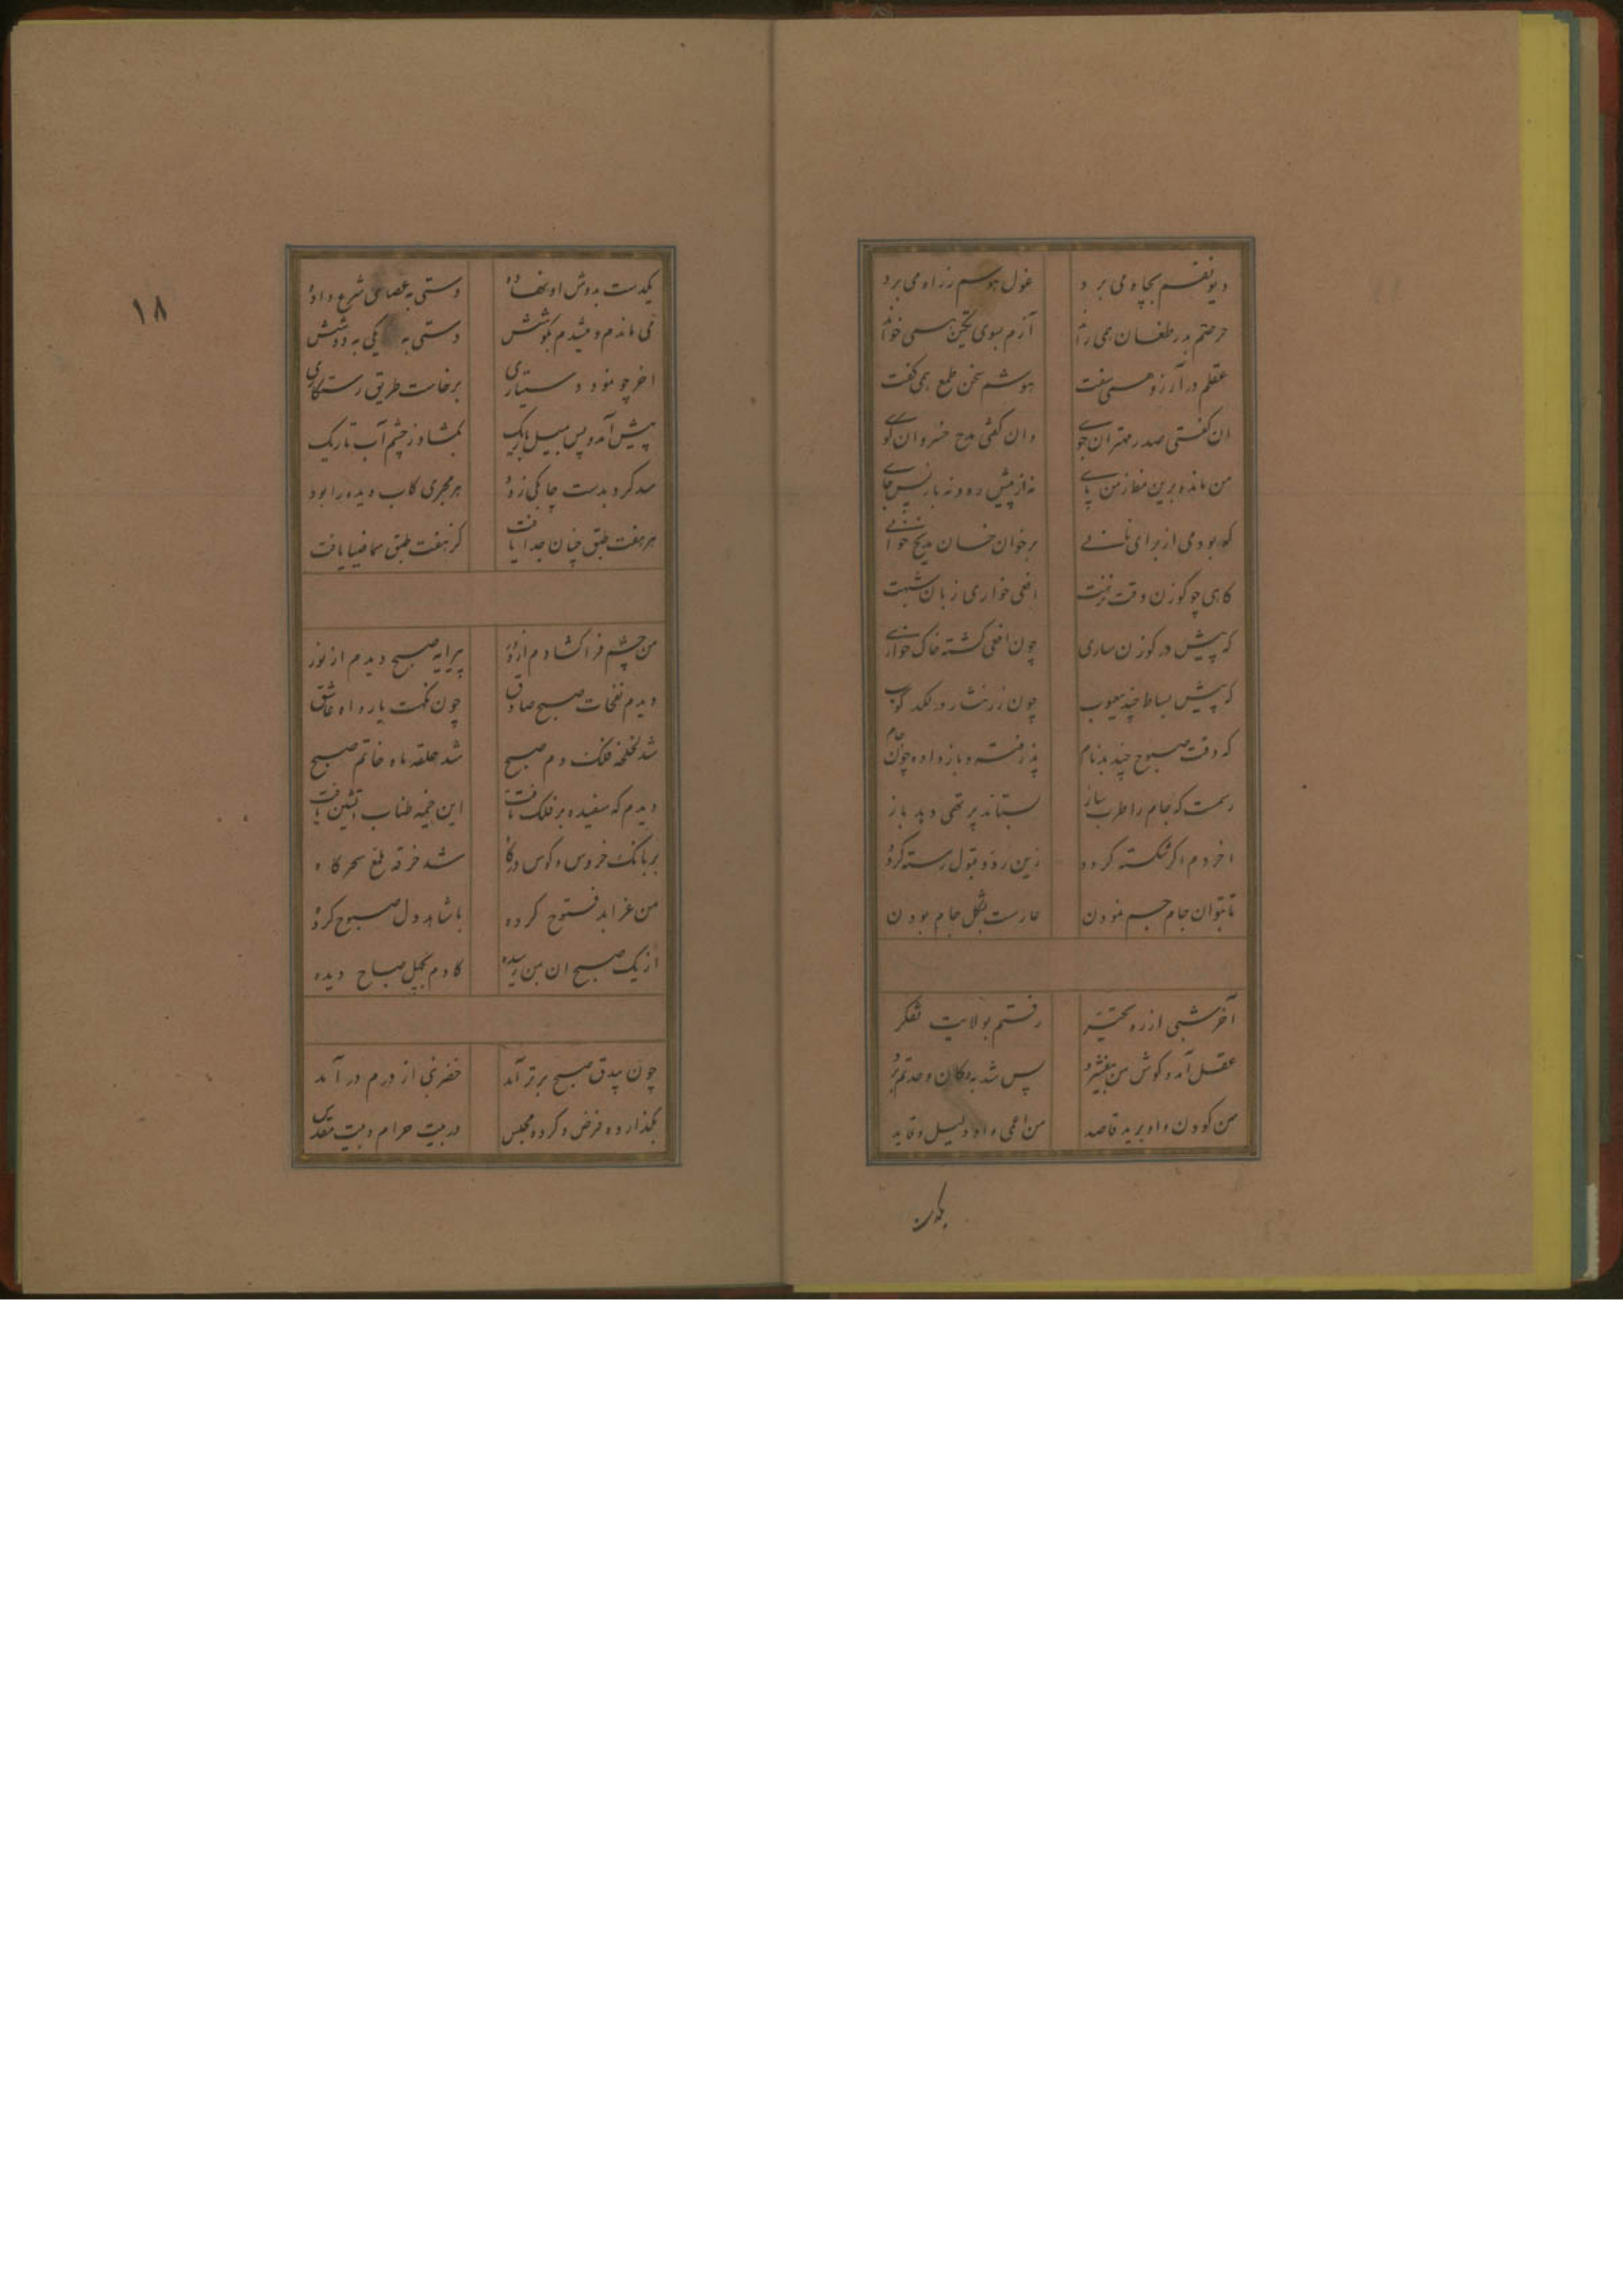 دیو نفسم بچاه می برد غول هوسم ز راه می برد
حرصم بدر طغان همی راند آزم بسوی تکین همی خواند
عقلم در آرزو همی سفت هوشم سخن طمع همی گفت
ان گفتی صدر مهتران جوی وان گفتی مدح خسروان گوی
من مانده برین مغاز من پای نه از پیش ره و نه باز پس جای
که بودمی از برای نانی بر خوان خسان مدیح خوانی
گاهی چو گوزن وقت افعی خواری زبان
که پیش در گوزن ساری چون افعی گشته خاک خواری
که پیش بساط چند معیوب چون نرد لکد کوب
که وقت صبوح چند بدنام پذرفته و باز داده چون جام
رسمست که جام را طرب ساز بستاند پر تهی دهد باز
اخر دم اگر شکسته گردد زین رد و قبول رسته گردد
تا بتوان جام جم نمودن عارست بشکل جام بودن
آخر شبی از ره تحیر رفتم بولایت تفکر
عقل آمد و گوش من بیفشرد پس شد بدکان وحدتم برد
من کودن و او برید قاصد من اعمی و او دلیل و قاید
یکدست
۱۸
یکدست بدوش او نهاده دستی به عصای شرع داده
می ماندم و میشدم بکوشش دستی به یکی به دوشش
اخر چو نمود دستیاری برخاست طریق رستگاری
پیش آمد و پس سبیل باریک بگشاد ز چشم آب تاریک
سد کرد بدست چابکی زود هر مجری کاب دیده را بود
هر هفت طبق چنان جدا یافت کز هفت طبق سما ضیا یافت
من چشم فرا گشادم از دور پیرایه صبح دیدم از نور
دیدم نفحات صبح صادق چون نکهت یار و اه عاشق
شد لخلخه فلک دم صبح شد حلقه ماه خاتم صبح
دیدم که سفیده بر فلک تافت این خیمه طناب اتشین یافت
بر بانک خروس و کوس درگاه شد خرقه ملمع سحرگاه
من عزابد فتوح کرده با شاهد دل صبوح کرده
از یک صبح ان بمن رسیده کادم بچهل صباح دیده
چون بیدق صبح برتر آمد خضر نبی از درم در آمد
بگذارده فرض و کرده مجلس در بیت حرام و بیت مقدس